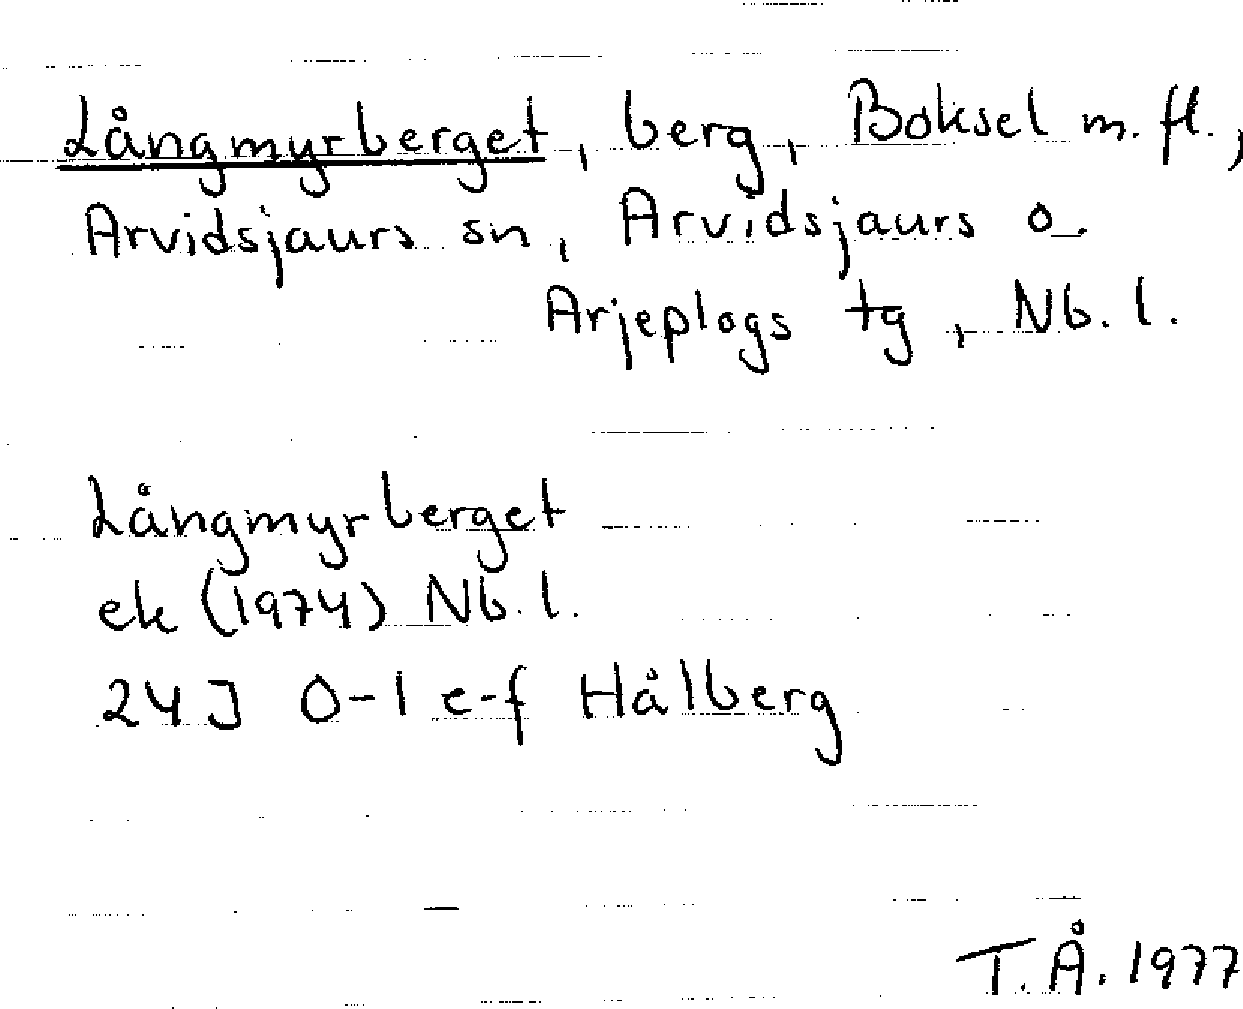 Långmyrberget, berg, Boksel m.fl.,
Arvidsjaurs sn, Arvidsjaurs o
Arjeplogs tg, Nb.l.
Långmyrberget
ek (1974) Nb.l.
24J 0-1 e-f Hålberg
T.Å. 1977